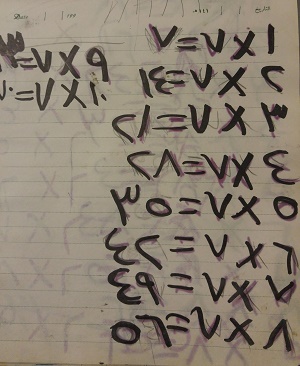 ١ × ٧ = ٧
٢ × ٧ = ١٤
٣ × ٧ = ٢١
٤ × ٧ = ٢٨
٥ × ٧ = ٣٥
٦ × ٧ = ٤٢
٧ × ٧ = ٤٩
٨ × ٧ = ٥٦
٩ × ٧ =
١٠ × ٧ =